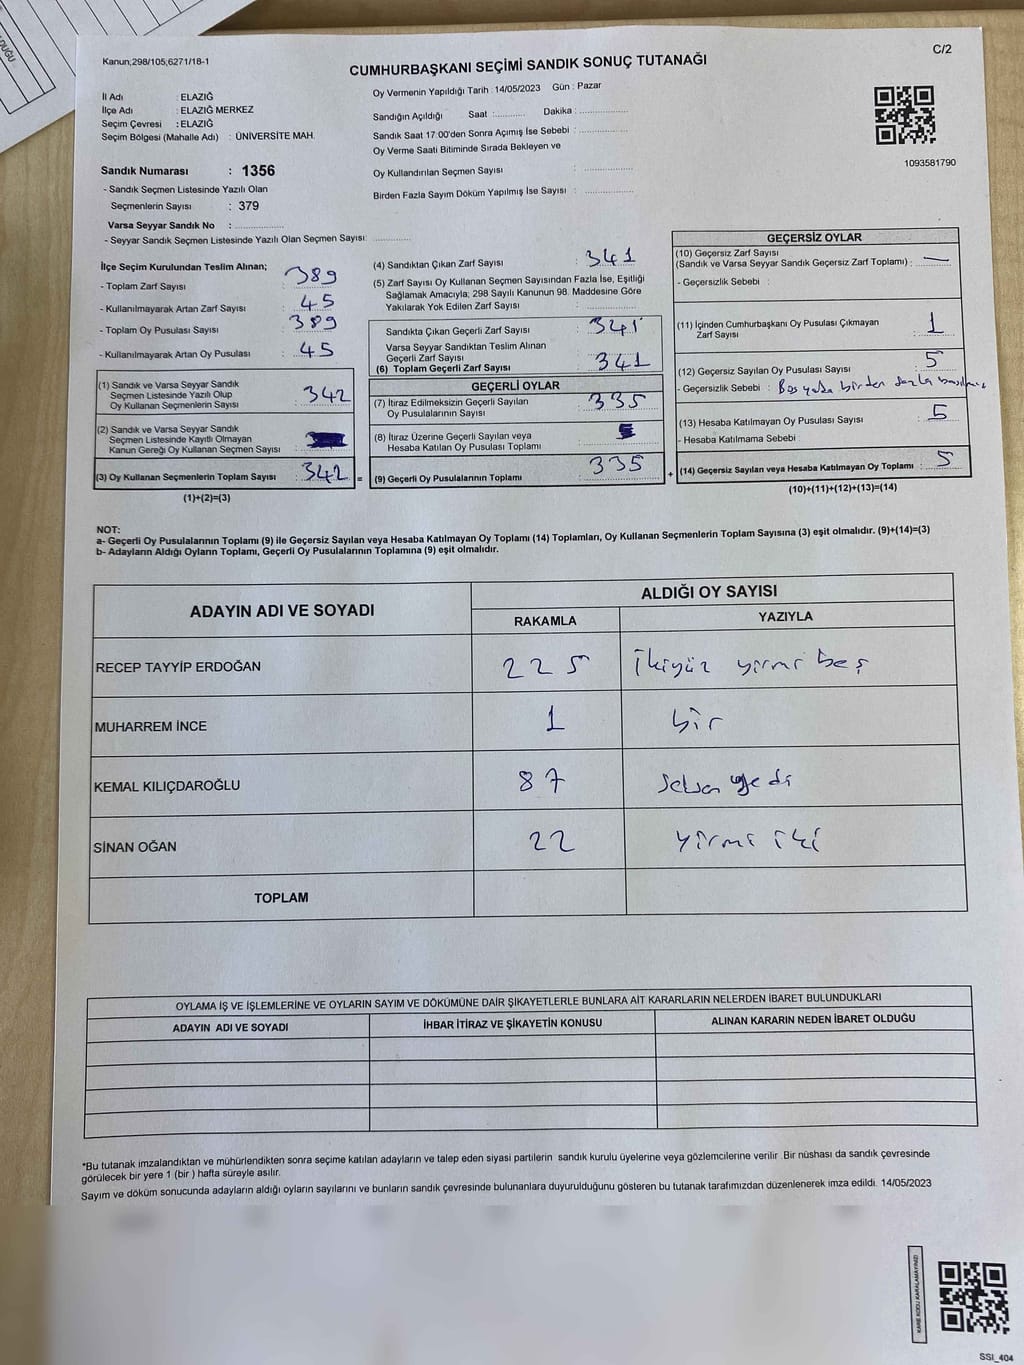 DUĞU
Kanun;298/105;6271/18-1
C/2
CUMHURBAŞKANI SEÇİMİ SANDIK SONUÇ TUTANAĞI
İl Adı : ELAZIĞ
İlçe Adı : ELAZIĞ MERKEZ
Seçim Çevresi : ELAZIĞ
Seçim Bölgesi (Mahalle Adı) : ÜNİVERSİTE MAH.
Sandık Numarası : 1356
- Sandık Seçmen Listesinde Yazılı Olan
Seçmenlerin Sayısı : 379
Varsa Seyyar Sandık No :
- Seyyar Sandık Seçmen Listesinde Yazılı Olan Seçmen Sayısı:
Oy Vermenin Yapıldığı Tarih : 14/05/2023 Gün : Pazar
Sandığın Açıldığı Saat : Dakika :
Sandık Saat 17:00'den Sonra Açımış İse Sebebi :
Oy Verme Saati Bitiminde Sırada Bekleyen ve
Oy Kullandırılan Seçmen Sayısı :
Birden Fazla Sayım Döküm Yapılmış İse Sayısı :
1093581790
İlçe Seçim Kurulundan Teslim Alınan;
- Toplam Zarf Sayısı : 389
- Kullanılmayarak Artan Zarf Sayısı : 45
- Toplam Oy Pusulası Sayısı : 389
- Kullanılmayarak Artan Oy Pusulası : 45
(1) Sandık ve Varsa Seyyar Sandık
Seçmen Listesinde Yazılı Olup
Oy Kullanan Seçmenlerin Sayısı : 342
(2) Sandık ve Varsa Seyyar Sandık
Seçmen Listesinde Kayıtlı Olmayan
Kanun Gereği Oy Kullanan Seçmen Sayısı :
(3) Oy Kullanan Seçmenlerin Toplam Sayısı : 342 =
(1)+(2)=(3)
(4) Sandıktan Çıkan Zarf Sayısı : 341
(5) Zarf Sayısı Oy Kullanan Seçmen Sayısından Fazla İse, Eşitliği
Sağlamak Amacıyla; 298 Sayılı Kanunun 98. Maddesine Göre
Yakılarak Yok Edilen Zarf Sayısı :
Sandıkta Çıkan Geçerli Zarf Sayısı : 341
Varsa Seyyar Sandıktan Teslim Alınan
Geçerli Zarf Sayısı :
(6) Toplam Geçerli Zarf Sayısı : 341
GEÇERLİ OYLAR
(7) İtiraz Edilmeksizin Geçerli Sayılan
Oy Pusulalarının Sayısı : 335
(8) İtiraz Üzerine Geçerli Sayılan veya
Hesaba Katılan Oy Pusulası Toplamı :
(9) Geçerli Oy Pusulalarının Toplamı : 335 +
GEÇERSİZ OYLAR
(10) Geçersiz Zarf Sayısı
(Sandık ve Varsa Seyyar Sandık Geçersiz Zarf Toplamı) : —
- Geçersizlik Sebebi :
(11) İçinden Cumhurbaşkanı Oy Pusulası Çıkmayan
Zarf Sayısı : 1
(12) Geçersiz Sayılan Oy Pusulası Sayısı : 5
- Geçersizlik Sebebi : Boş yada birden fazla basılmış
(13) Hesaba Katılmayan Oy Pusulası Sayısı : 5
- Hesaba Katılmama Sebebi :
(14) Geçersiz Sayılan veya Hesaba Katılmayan Oy Toplamı : 5
(10)+(11)+(12)+(13)=(14)
NOT:
a- Geçerli Oy Pusulalarının Toplamı (9) ile Geçersiz Sayılan veya Hesaba Katılmayan Oy Toplamı (14) Toplamları, Oy Kullanan Seçmenlerin Toplam Sayısına (3) eşit olmalıdır. (9)+(14)=(3)
b- Adayların Aldığı Oyların Toplamı, Geçerli Oy Pusulalarının Toplamına (9) eşit olmalıdır.
ADAYIN ADI VE SOYADI
ALDIĞI OY SAYISI
RAKAMLA YAZIYLA
RECEP TAYYİP ERDOĞAN 225 İkiyüz yirmi beş
MUHARREM İNCE 1 bir
KEMAL KILIÇDAROĞLU 87 Seksen yedi
SİNAN OĞAN 22 yirmi iki
TOPLAM
OYLAMA İŞ VE İŞLEMLERİNE VE OYLARIN SAYIM VE DÖKÜMÜNE DAİR ŞİKAYETLERLE BUNLARA AİT KARARLARIN NELERDEN İBARET BULUNDUKLARI
ADAYIN ADI VE SOYADI İHBAR İTİRAZ VE ŞİKAYETİN KONUSU ALINAN KARARIN NEDEN İBARET OLDUĞU
*Bu tutanak imzalandıktan ve mühürlendikten sonra seçime katılan adayların ve talep eden siyasi partilerin sandık kurulu üyelerine veya gözlemcilerine verilir .Bir nüshası da sandık çevresinde
görülecek bir yere 1 (bir ) hafta süreyle asılır.
Sayım ve döküm sonucunda adayların aldığı oyların sayılarını ve bunların sandık çevresinde bulunanlara duyurulduğunu gösteren bu tutanak tarafımızdan düzenlenerek imza edildi. 14/05/2023
KARE KODU KARALAMAYINIZ!
SSI_404